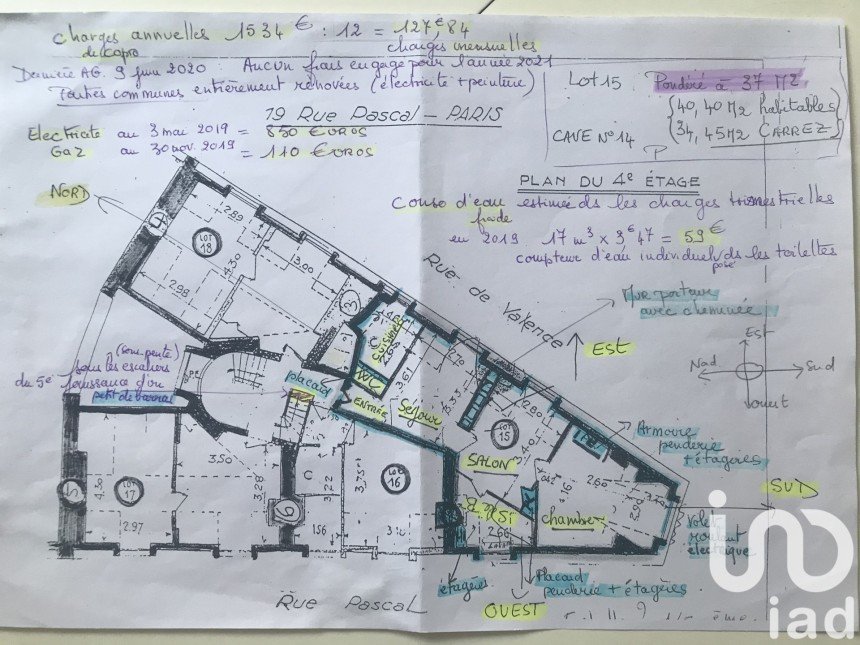 Charges annuelles 1534 € : 12 = 127€,84
de copro
charges mensuelles
Dernière AG. 9 juin 2020 : Aucun frais engagé pour l'année 2021
Parties communes entièrement rénovées (électricité + peinture)
19 Rue Pascal - PARIS
Electricité au 3 mai 2019 = 830 Euros
Gaz au 30 nov. 2019 = 110 Euros
LOT 15 Pondéré à 37 M2
40,40 M2 habitables
34,45 M2 CARREZ
CAVE N° 14
PLAN DU 4e ÉTAGE
Conso d'eau estimée ds les charges trimestrielles
froide
en 2019 17 m3 x 3€47 = 59€
compteur d'eau individuel ds les toilettes
posé
NORD
LOT 18
2.89
4.30
3.00
2.98
Rue de Valence
Mur porteur
avec cheminée
EST
Est
Nord
Sud
Ouest
(sous pente)
sous les escaliers
du 5e jouissance d'un
petit débarras
placard
Cuisine
C
WC
ENTRÉE
Séjour
3.61
3.35
2.80
LOT 15
3.40
SALON
Armoire
penderie
+ étagères
SUD
LOT 17
4.30
2.97
3.50
3.28
C
3.22
1.56
3.75
LOT 16
3.10
4.16
2.60
2.90
chambre
S. de Si
2.66
Volet
roulant
électrique
étagères
Placard
penderie + étagères
OUEST
Rue Pascal
iad